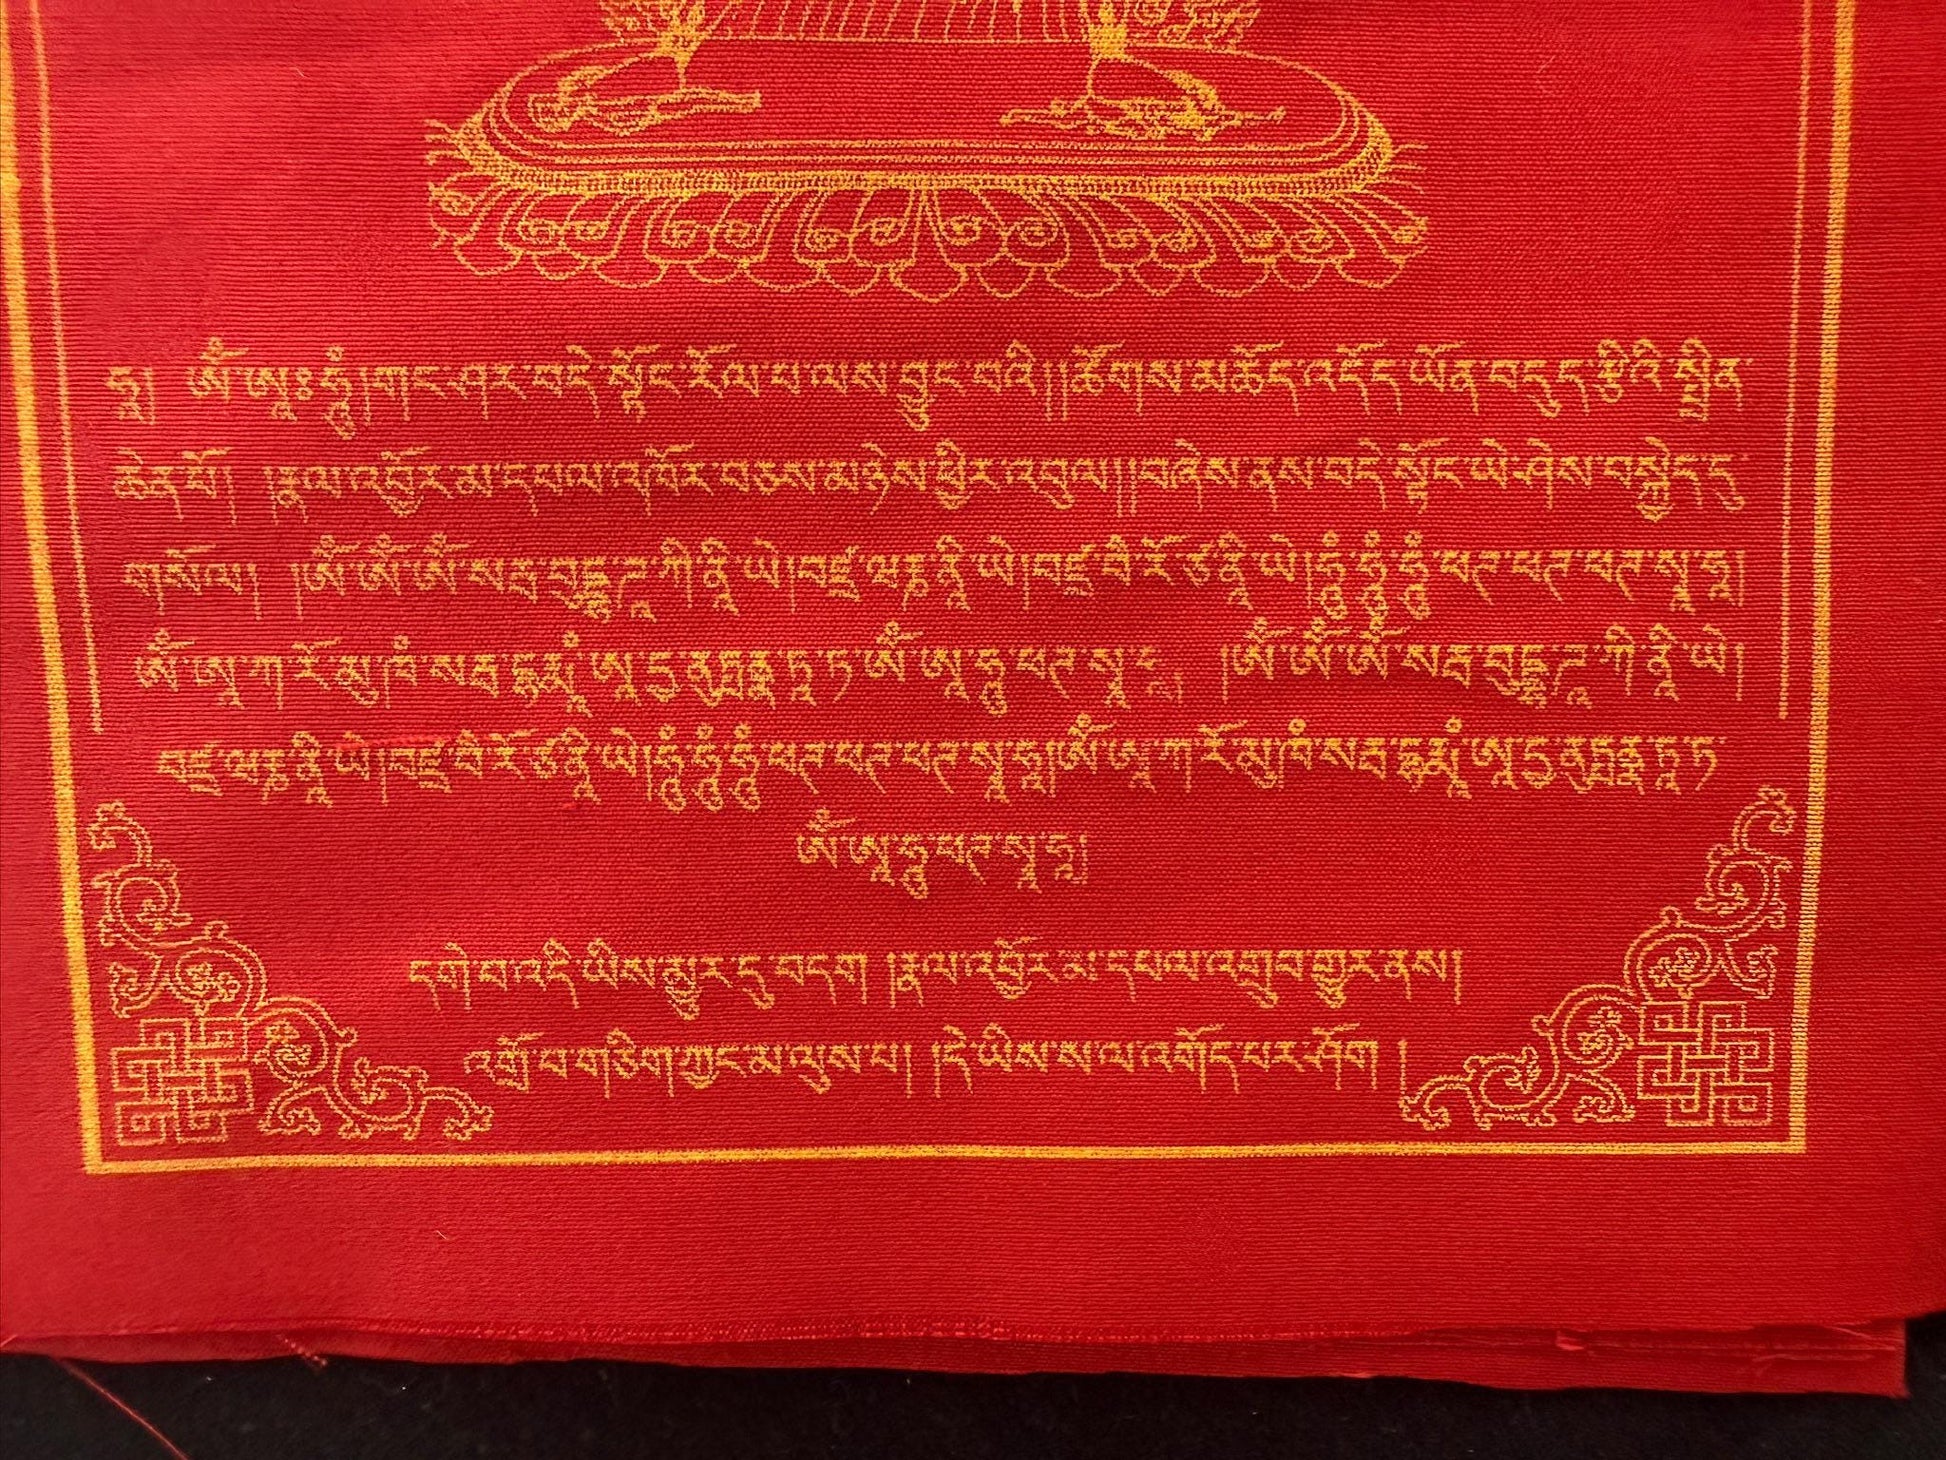 ཧཱ། ཨོཾ་ཨཱཿཧཱུྃ།གང་ཤར་བདེ་སྟོང་རོལ་པ་ལས་བྱུང་བའི།།ཚོགས་མཆོད་འདོད་ཡོན་བདུད་རྩིའི་སྤྲིན་
ཆེན་པོ། །རྣལ་འབྱོར་མ་དཔལ་འཁོར་བཅས་མཉེས་ཕྱིར་འབུལ།།བཞེས་ནས་བདེ་སྟོང་ཡེ་ཤེས་བསྐྱེད་དུ་
གསོལ། །ཨོཾ་ཨོཾ་ཨོཾ་སརྦ་བུདྡྷ་ཌཱ་ཀི་ནཱི་ཡེ།བཛྲ་ཝརྞ་ནཱི་ཡེ།བཛྲ་བཻ་རོ་ཙ་ནཱི་ཡེ།ཧཱུྃ་ཧཱུྃ་ཧཱུྃ་ཕཊ་ཕཊ་ཕཊ་སྭཱ་ཧཱ།
ཨོཾ་ཨཱ་ཀཱ་རོ་མུ་ཁཾ་སརྦ་དྷརྨཱཾ་ཨཱ་དྱ་ནུཏྤནྣ་ཏྭཱ་ཏ་ཨོཾ་ཨཱ་ཧཱུ་ཕཊ་སྭཱ་ཧཱ། །ཨོཾ་ཨོཾ་ཨོཾ་སརྦ་བུདྡྷ་ཌཱ་ཀི་ནཱི་ཡེ།
བཛྲ་ཝརྞ་ནཱི་ཡེ།བཛྲ་བཻ་རོ་ཙ་ནཱི་ཡེ།ཧཱུྃ་ཧཱུྃ་ཧཱུྃ་ཕཊ་ཕཊ་ཕཊ་སྭཱ་ཧཱ།ཨོཾ་ཨཱ་ཀཱ་རོ་མུ་ཁཾ་སརྦ་དྷརྨཱཾ་ཨཱ་དྱ་ནུཏྤནྣ་ཏྭཱ་ཏ་
ཨོཾ་ཨཱ་ཧཱུ་ཕཊ་སྭཱ་ཧཱ།
དགེ་བ་འདི་ཡིས་མྱུར་དུ་བདག །རྣལ་འབྱོར་མ་དཔལ་འགྲུབ་གྱུར་ནས།
འགྲོ་བ་གཅིག་ཀྱང་མ་ལུས་པ། །དེ་ཡིས་ས་ལ་འགོད་པར་ཤོག །